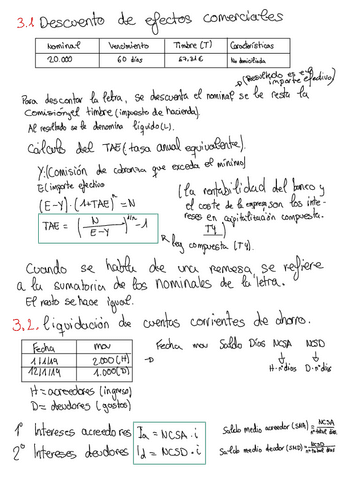 3.1 Descuento de efectos comerciales
Nominal Vencimiento Timbre (T) Características
20.000 60 días 67,31€ No domiciliada
(Resultado es el importe efectivo)
Para descontar la letra, se descuenta el nominal, se le resta la
Comisión y el timbre (impuesto de hacienda).
Al resultado se le denomina líquido (L).
Cálculo del TAE (tasa anual equivalente).
Y (Comisión de cobranza que exceda el mínimo)
E (importe efectivo
(E-Y)·(1+TAE)ⁿ = N
TAE = (N/E-Y)^(1/n) - 1
(la rentabilidad del banco y
el coste de la empresa son los inte-
reses en capitalización compuesta.
T4)
R ley compuesta (T4).
Cuando se habla de una remesa, se refiere
a la sumatoria de los nominales de la letra.
El resto se hace igual.
3.2. liquidación de cuentas corrientes de ahorro.
Fecha mov
1/1/19 2.000 (H)
12/1/19 1.000 (D)
Fecha mov Saldo Días NCSA NSD
H·nºdías D·nºdías
H = acreedores (ingreso)
D = deudores (gastos)
1º Intereses acreedores Ia = NCSA · i
2º Intereses deudores Id = NCSD · i
Saldo medio acreedor (SMA) = NCSA/nº total días
Saldo medio deudor (SMD) = NCSD/nº total días